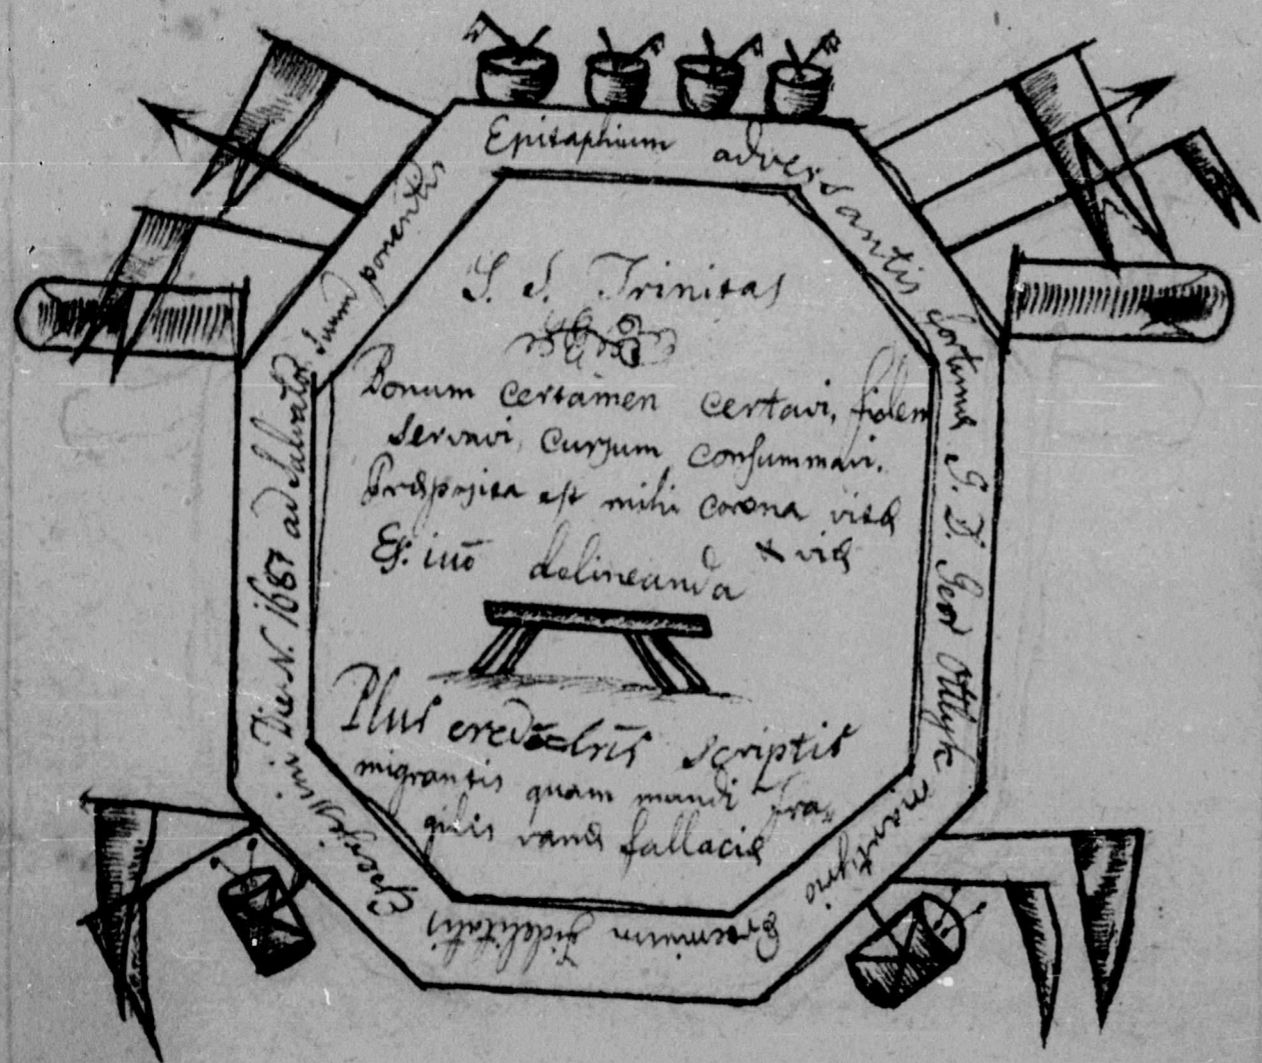 Epitaphium adversantis fortunæ G. D. Geor Ottlyk martyrio
Præmium Fidelitatis
Die N. 1687 ad Salvator Suum ponentis
S. S. Trinitas
Bonum certamen certavi, fidem
servavi, cursum consummavi.
Præposita est mihi corona vitæ
& viæ
delineanda
Plus scriptis
migrantis quam mundi fra„
gilis vanæ fallaciæ